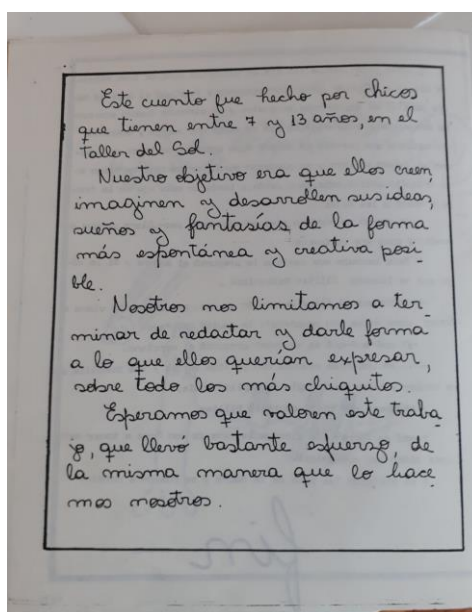 Este cuento fue hecho por chicos
que tienen entre 7 y 13 años, en el
Taller del Sol.
Nuestro objetivo era que ellos creen,
imaginen y desarrollen sus ideas,
sueños y fantasías, de la forma
más espontánea y creativa posi_
ble.
Nosotros nos limitamos a ter_
minar de redactar y darle forma
a lo que ellos querían expresar,
sobre todo los más chiquitos.
Esperamos que valoren este traba_
jo, que llevó bastante esfuerzo, de
la misma manera que lo hace_
mos nosotros.
fin